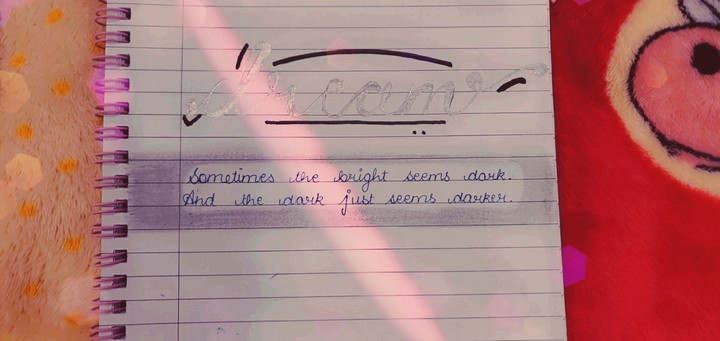 Dream
Sometimes the bright seems dark.
And the dark just seems darker.